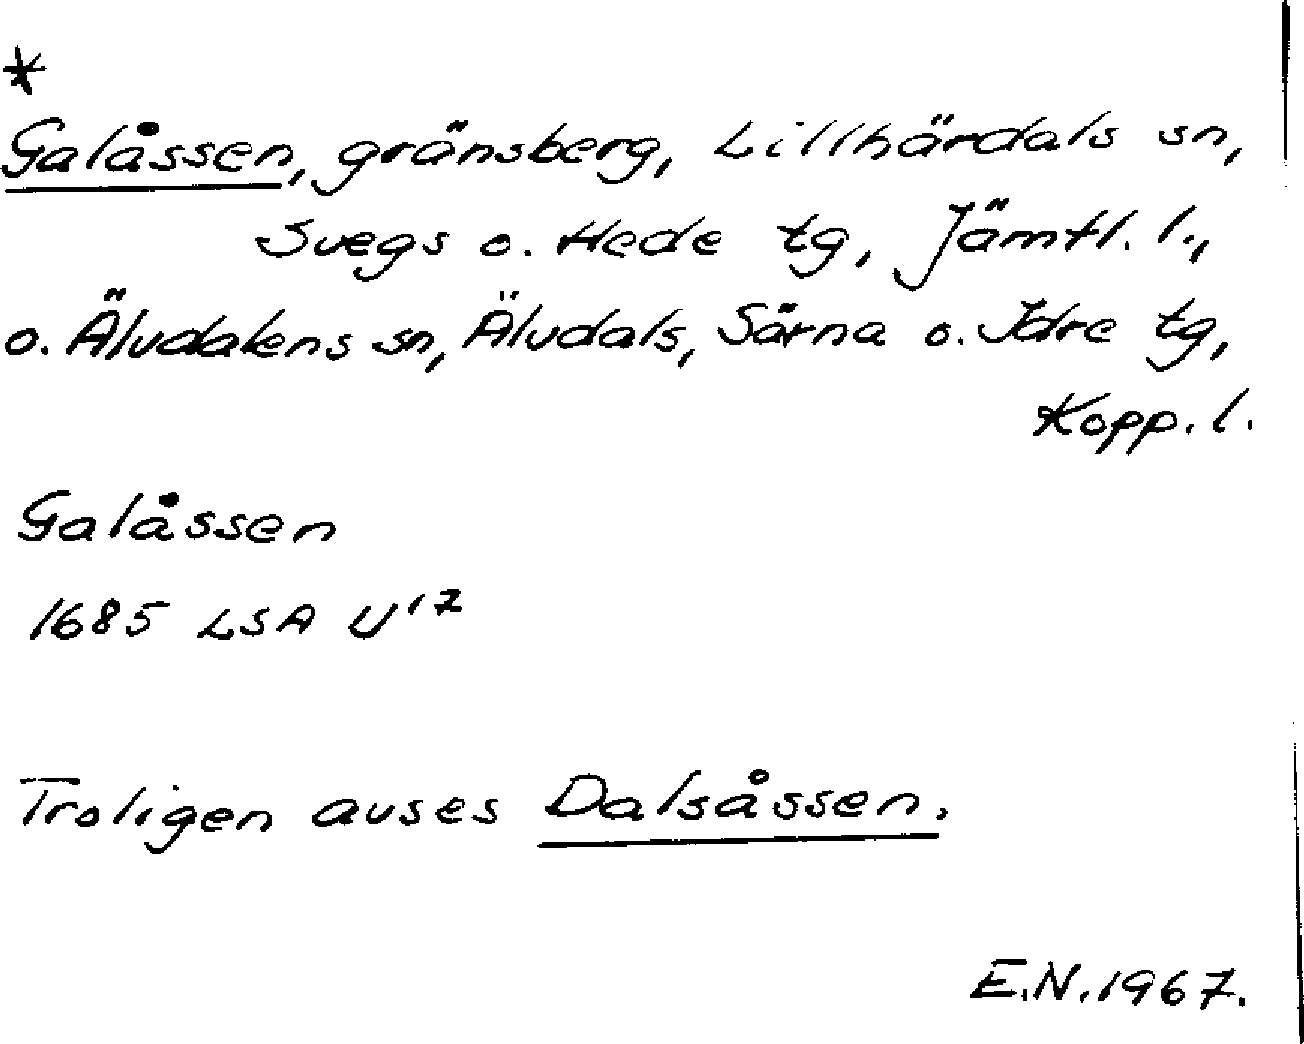 *
Galåssen, gränsberg, Lillhärdals sn,
Svegs o. Hede tg, Jämtl. l.,
o. Älvdalens sn, Älvdals, Särna o. Idre tg,
Kopp. l.
Galåssen
1685 LSA U¹⁷
Troligen avses Dalsåssen.
E.N. 1967.